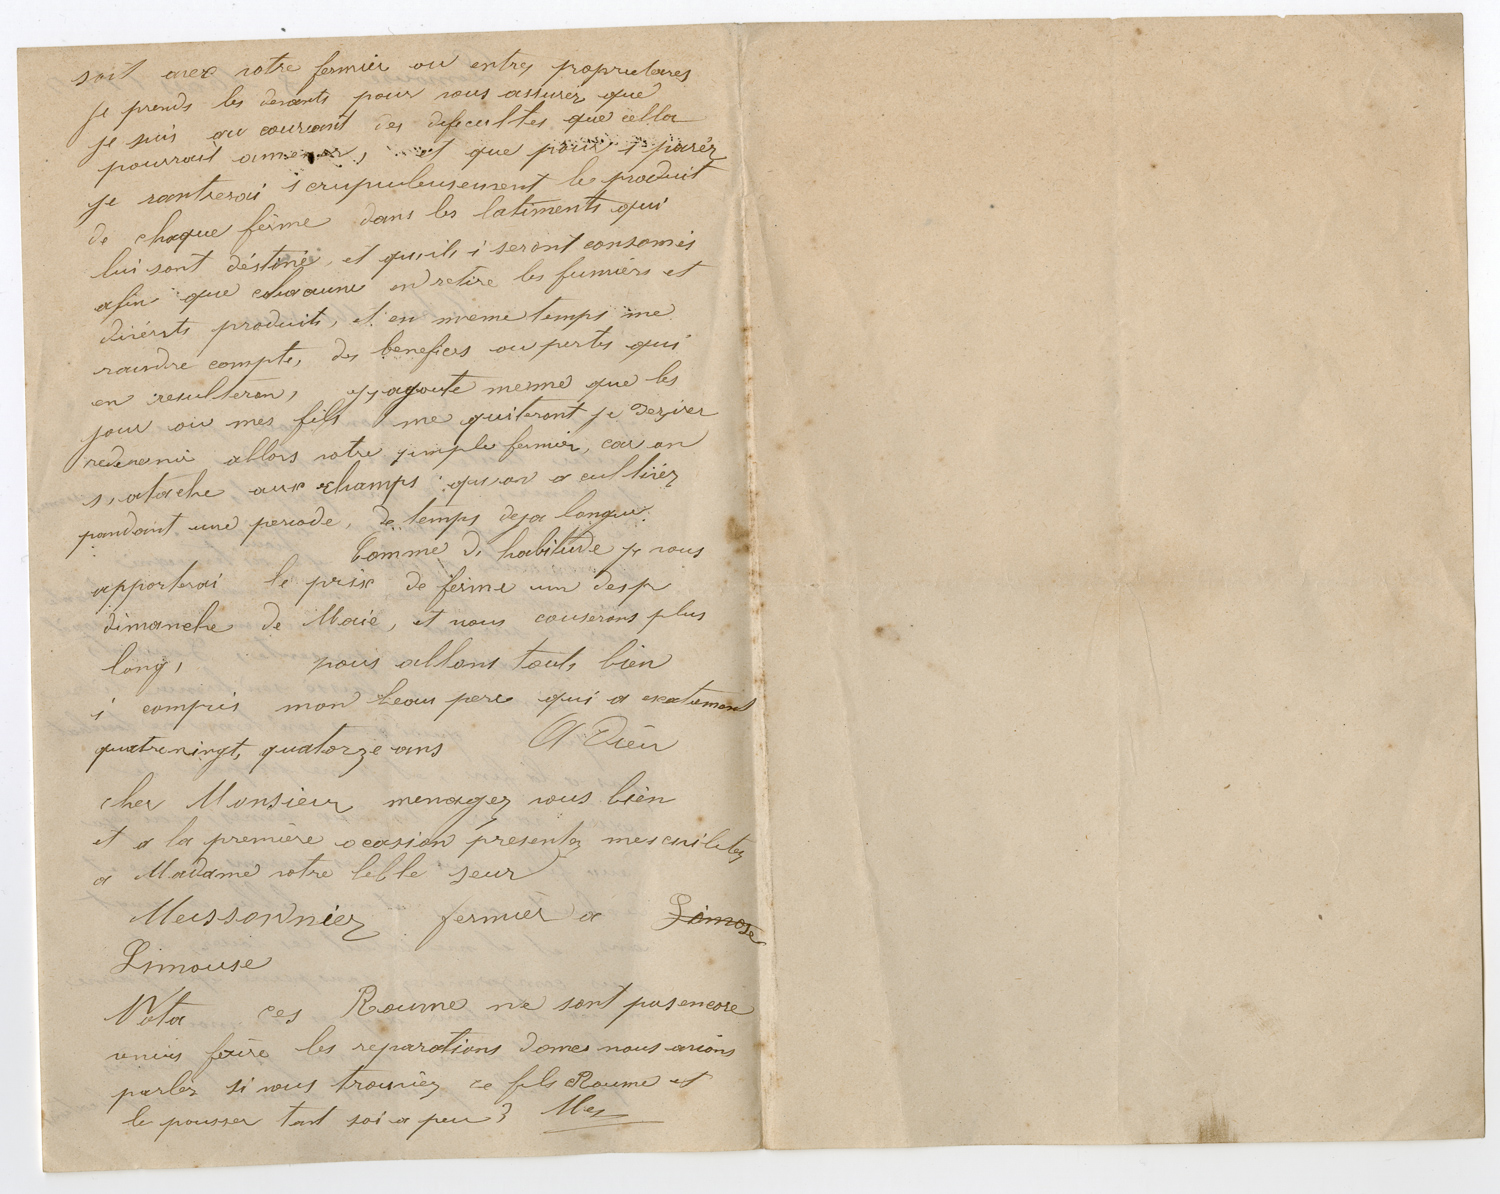 soit avex votre fermier ou entrez propriétaires
je prends les devants pour vous assurer que
je suis au courant des dificultes que cella
pourrait amener, et que pour i parér
je rantrerai scrupuleusement le produit
de chaque férme dans les batiments qui
lui sont déstiné, et qu,ils i seront consomés
afin que chacune en retire les fumiérs et
divérsts produits, et en meme temps me
raindre compte, des benefices ou pertes qui
en resulteron, et j,ajoute meme que les
jour ou mes fils me quiteront je dezirer
redevenir allors votre simple fermier, car on
s,atache aux champs qu,on a cultivéz
pandant une periode, de temps deja longue.
Comme d, habitude je vous
apporterai le prix de ferme un des p
dimanche de Maie, et nous couserons plus
long, nous allons touts bien
i compris mon beau pere qui a exatement
quatrevingt, quatorze ans A Diéu
cher Monsieur menagez vous bien
et a la première ocasion presentez mes civilitez
a Madame votre belle seur
Meissonniez fermièr a Limose
Limouse
Nota ces Roume ne sont pas encore
venus faire les reparations dones nous avions
parler si vous trouviez ce fils Roume et
le pousser tant soi a peu ? Mes